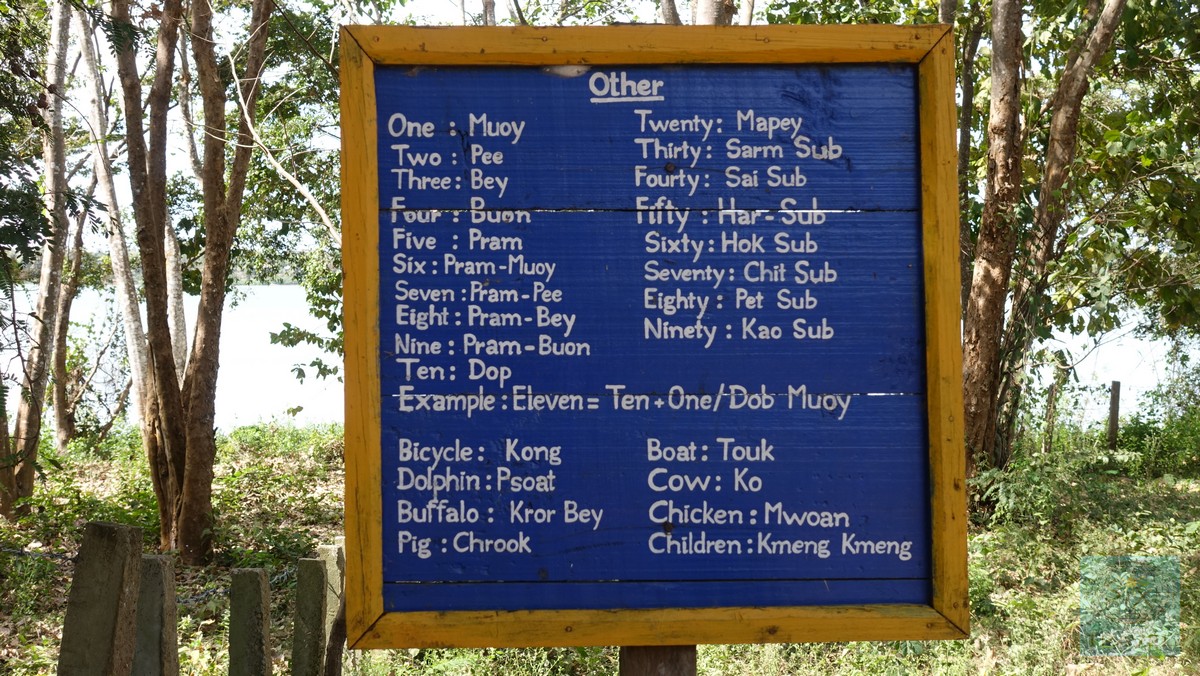 Other
One : Muoy
Two : Pee
Three: Bey
Four : Buon
Five : Pram
Six : Pram-Muoy
Seven : Pram-Pee
Eight : Pram-Bey
Nine : Pram-Buon
Ten : Dop
Twenty : Mapey
Thirty : Sarm Sub
Fourty : Sai Sub
Fifty : Har-Sub
Sixty : Hok Sub
Seventy : Chit Sub
Eighty : Pet Sub
Ninety : Kao Sub
Example : Eleven = Ten + One/Dob Muoy
Bicycle : Kong
Dolphin : Psoat
Buffalo : Kror Bey
Pig : Chrook
Boat : Touk
Cow : Ko
Chicken : Mwoan
Children : Kmeng Kmeng